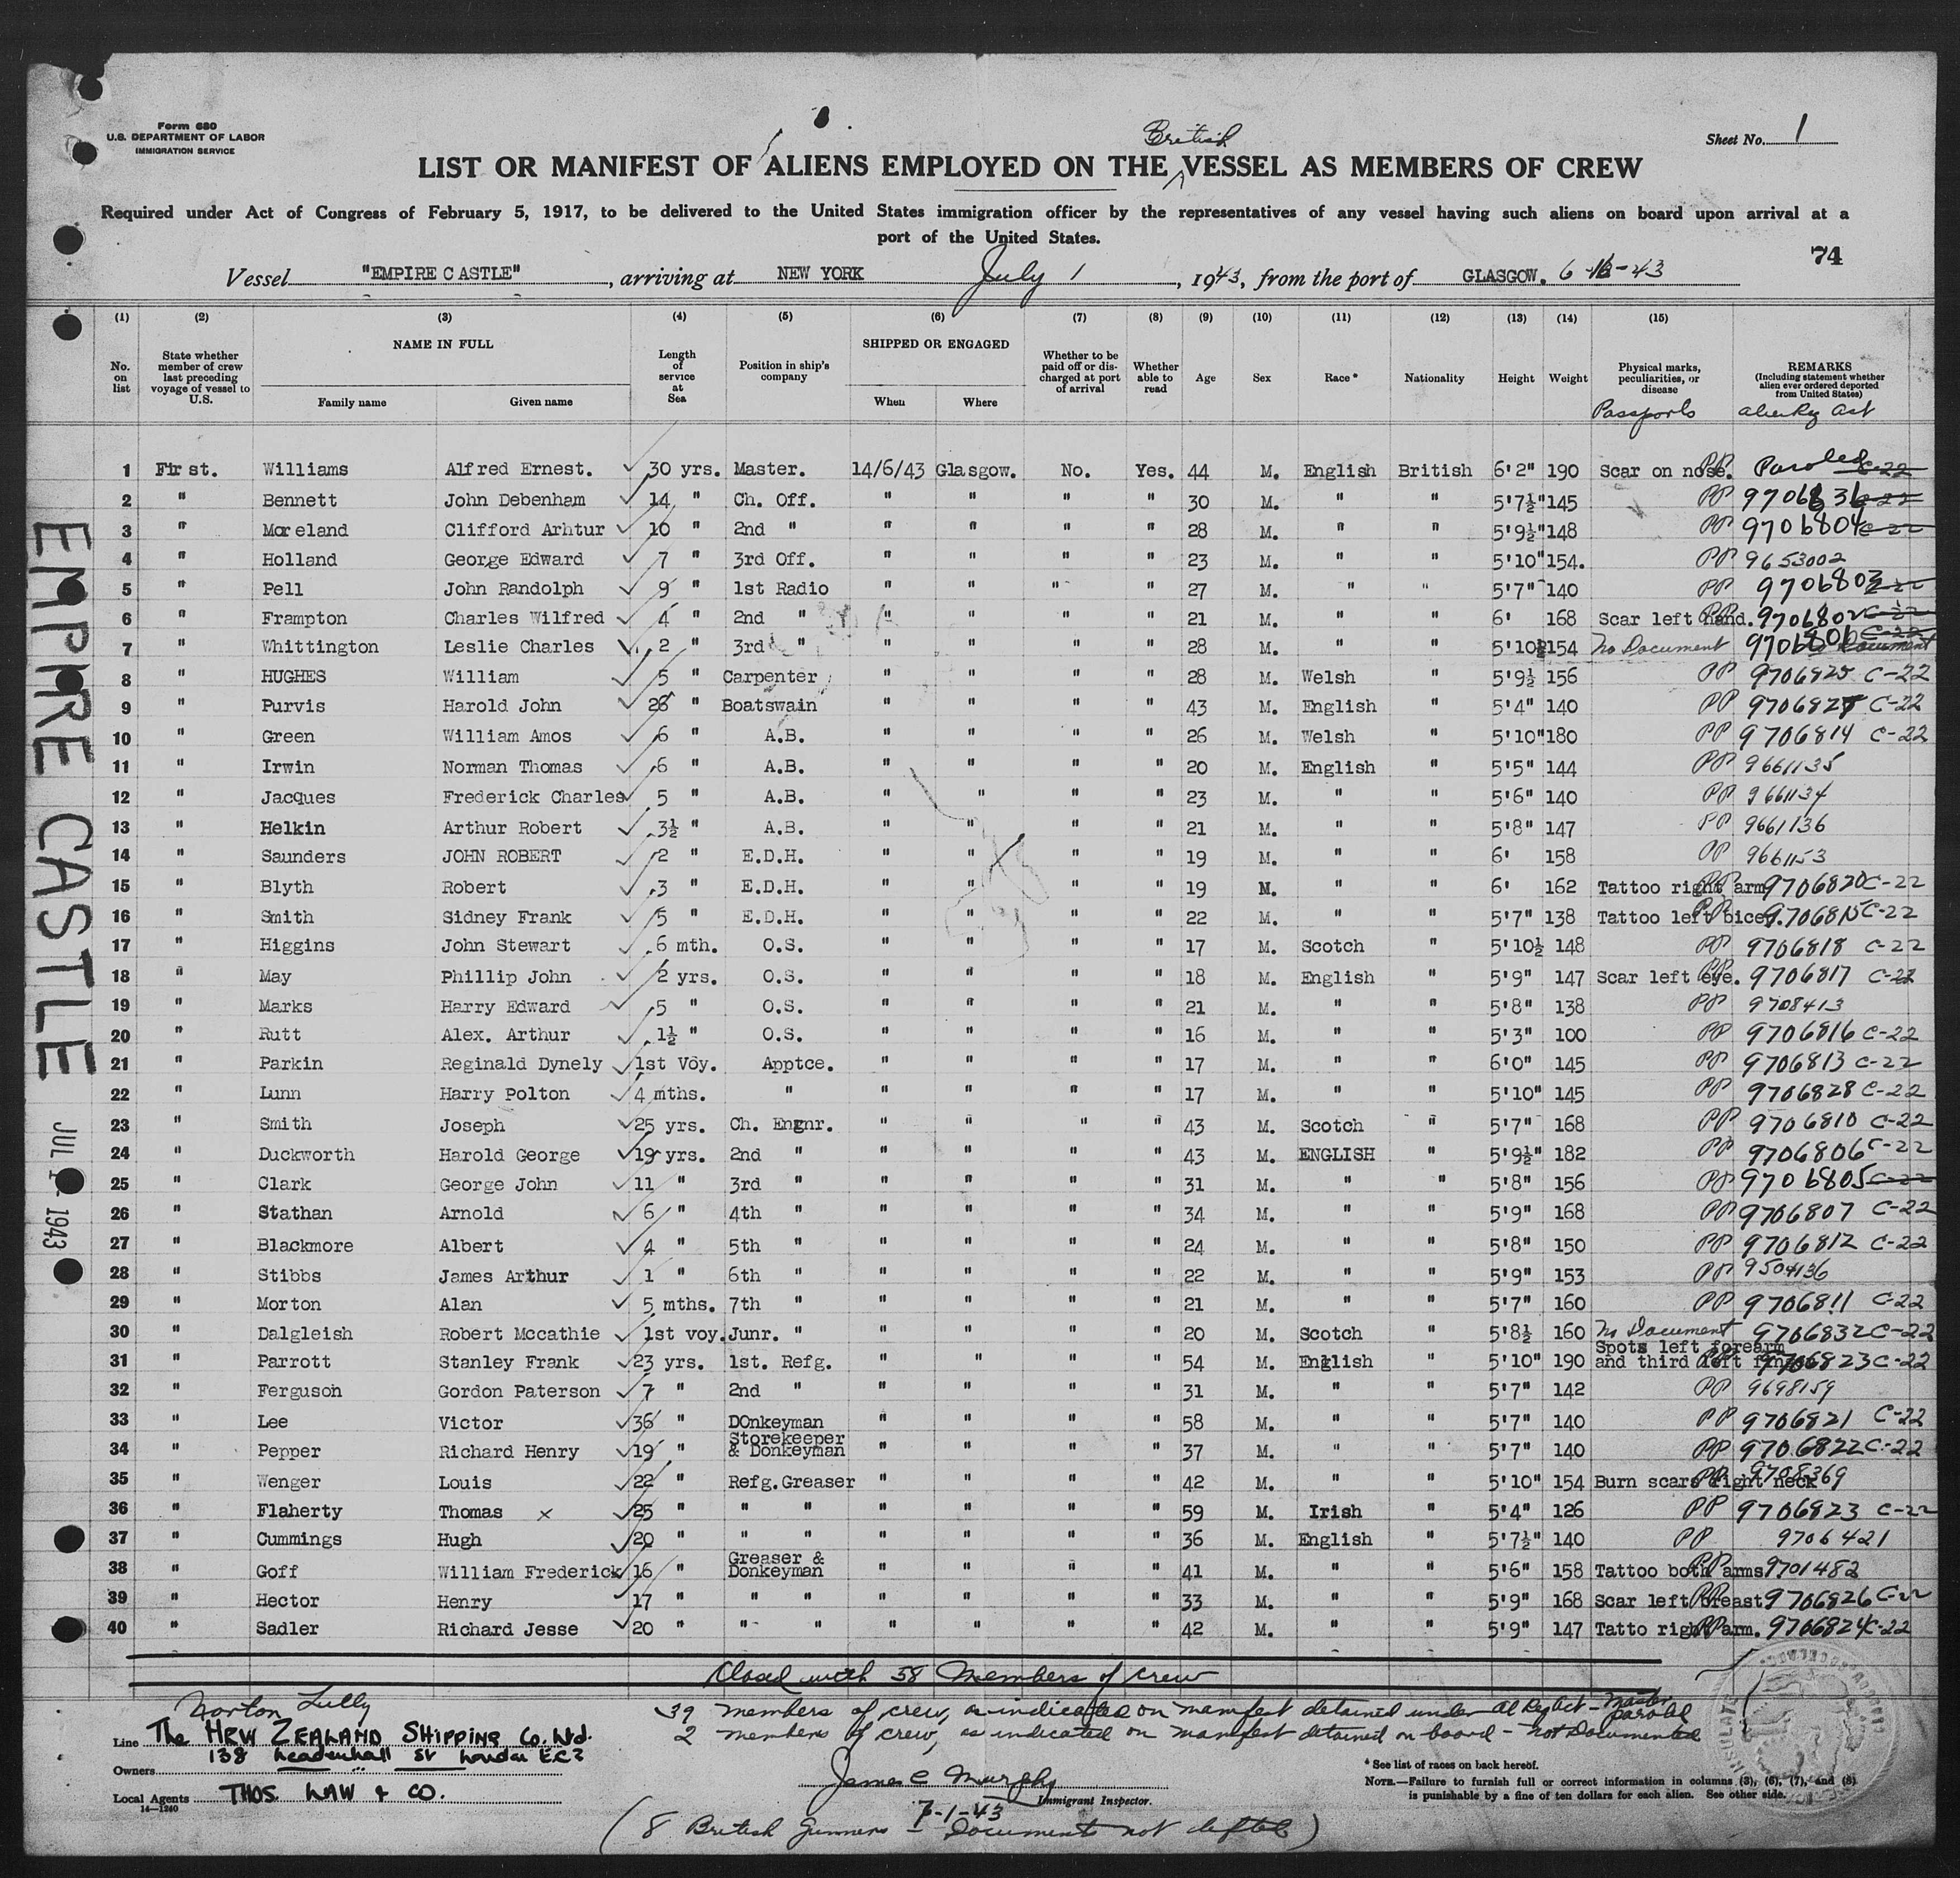 Form 680
U.S. DEPARTMENT OF LABOR
IMMIGRATION SERVICE
Sheet No. 1
British
LIST OR MANIFEST OF ALIENS EMPLOYED ON THE VESSEL AS MEMBERS OF CREW
Required under Act of Congress of February 5, 1917, to be delivered to the United States immigration officer by the representatives of any vessel having such aliens on board upon arrival at a
port of the United States.
74
Vessel "EMPIRE CASTLE", arriving at NEW YORK July 1, 1943, from the port of GLASGOW.
(1) (2) (3) (4) (5) (6) (7) (8) (9) (10) (11) (12) (13) (14) (15)
No. on list
State whether member of crew last preceding voyage of vessel to U.S.
NAME IN FULL
Family name Given name
Length of service at Sea
Position in ship's company
SHIPPED OR ENGAGED
When Where
Whether to be paid off or discharged at port of arrival
Whether able to read
Age Sex Race* Nationality Height Weight
Physical marks, peculiarities, or disease
Passports
REMARKS
(Including statement whether alien ever ordered deported from United States)
Alien Reg Act
1 First. Williams Alfred Ernest. 30 yrs. Master. 14/6/43 Glasgow. No. Yes. 44 M. English British 6'2" 190 Scar on nose. PP Paroled C-22
2 " Bennett John Debenham 14 " Ch. Off. " " " " 30 M. " " 5'7½" 145 PP 9706836 C-22
3 " Moreland Clifford Arhtur 10 " 2nd " " " " " 28 M. " " 5'9½" 148 PP 9706804 C-22
4 " Holland George Edward 7 " 3rd Off. " " " " 23 M. " " 5'10" 154. PP 9653002
5 " Pell John Randolph 9 " 1st Radio " " " " 27 M. " " 5'7" 140 PP 9706803 C-22
6 " Frampton Charles Wilfred 4 " 2nd " " " " " 21 M. " " 6' 168 Scar left hand. PP 9706802 C-22
7 " Whittington Leslie Charles 2 " 3rd " " " " " 28 M. " " 5'10½ 154 No Document 9706801 C-22
8 " HUGHES William 5 " Carpenter " " " " 28 M. Welsh " 5'9½ 156 PP 9706825 C-22
9 " Purvis Harold John 26 " Boatswain " " " " 43 M. English " 5'4" 140 PP 9706827 C-22
10 " Green William Amos 6 " A.B. " " " " 26 M. Welsh " 5'10" 180 PP 9706814 C-22
11 " Irwin Norman Thomas 6 " A.B. " " " " 20 M. English " 5'5" 144 PP 9661135
12 " Jacques Frederick Charles 5 " A.B. " " " " 23 M. " " 5'6" 140 PP 9661134
13 " Helkin Arthur Robert 3½ " A.B. " " " " 21 M. " " 5'8" 147 PP 9661136
14 " Saunders JOHN ROBERT 2 " E.D.H. " " " " 19 M. " " 6' 158 PP 9661153
15 " Blyth Robert 3 " E.D.H. " " " " 19 M. " " 6' 162 Tattoo right arm PP 9706820 C-22
16 " Smith Sidney Frank 5 " E.D.H. " " " " 22 M. " " 5'7" 138 Tattoo left bicep. PP 9706815 C-22
17 " Higgins John Stewart 6 mth. O.S. " " " " 17 M. Scotch " 5'10½ 148 PP 9706818 C-22
18 " May Phillip John 2 yrs. O.S. " " " " 18 M. English " 5'9" 147 Scar left eye. PP 9706817 C-22
19 " Marks Harry Edward 5 " O.S. " " " " 21 M. " " 5'8" 138 PP 9708413
20 " Rutt Alex. Arthur 1½ " O.S. " " " " 16 M. " " 5'3" 100 PP 9706816 C-22
21 " Parkin Reginald Dynely 1st Voy. Apptce. " " " " 17 M. " " 6'0" 145 PP 9706813 C-22
22 " Lunn Harry Polton 4 mths. " " " " " 17 M. " " 5'10" 145 PP 9706828 C-22
23 " Smith Joseph 25 yrs. Ch. Engnr. " " " " 43 M. Scotch " 5'7" 168 PP 9706810 C-22
24 " Duckworth Harold George 19 yrs. 2nd " " " " " 43 M. ENGLISH " 5'9½" 182 PP 9706806 C-22
25 " Clark George John 11 " 3rd " " " " " 31 M. " " 5'8" 156 PP 9706805 C-22
26 " Stathan Arnold 6 " 4th " " " " " 34 M. " " 5'9" 168 PP 9706807 C-22
27 " Blackmore Albert 4 " 5th " " " " " 24 M. " " 5'8" 150 PP 9706812 C-22
28 " Stibbs James Arthur 1 " 6th " " " " " 22 M. " " 5'9" 153 PP 9504136
29 " Morton Alan 5 mths. 7th " " " " " 21 M. " " 5'7" 160 PP 9706811 C-22
30 " Dalgleish Robert Mccathie 1st voy. Junr. " " " " " 20 M. Scotch " 5'8½ 160 No Document 9706832 C-22
31 " Parrott Stanley Frank 23 yrs. 1st. Refg. " " " " 54 M. English " 5'10" 190 Spots left forearm and third left PP 9706823 C-22
32 " Ferguson Gordon Paterson 7 " 2nd " " " " " 31 M. " " 5'7" 142 PP 9698159
33 " Lee Victor 36 " DOnkeyman " " " " 58 M. " " 5'7" 140 PP 9706821 C-22
34 " Pepper Richard Henry 19 " Storekeeper & Donkeyman " " " " 37 M. " " 5'7" 140 PP 9706822 C-22
35 " Wenger Louis 22 " Refg.Greaser " " " " 42 M. " " 5'10" 154 Burn scars right neck PP 9708369
36 " Flaherty Thomas x 25 " " " " " " 59 M. Irish " 5'4" 126 PP 9706823 C-22
37 " Cummings Hugh 20 " " " " " " " 36 M. English " 5'7½" 140 PP 9706421
38 " Goff William Frederick 16 " Greaser & Donkeyman " " " " 41 M. " " 5'6" 158 Tattoo both arms PP 9701482
39 " Hector Henry 17 " " " " " " " 33 M. " " 5'9" 168 Scar left breast PP 9706826 C-22
40 " Sadler Richard Jesse 20 " " " " " " " 42 M. " " 5'9" 147 Tatto right arm. PP 9706824 C-22
Closed with 58 Members of crew
39 members of crew, as indicated on manifest detained under Al Reg Act - Master paroled
2 members of crew, as indicated on manifest detained on board - not Documented
Norton Lilly
Line The NEW ZEALAND SHIPPING Co. Ltd.
138 Leadenhall St London E.C3
Owners
Local Agents THOS. LAW & CO.
14-1240
James C Murphy
Immigrant Inspector.
7-1-43
(8 British Gunners - Document not
* See list of races on back hereof.
NOTE.—Failure to furnish full or correct information in columns (3), (6), (7), and (8)
is punishable by a fine of ten dollars for each alien. See other side.
EMPIRE CASTLE
JUL 1 1943